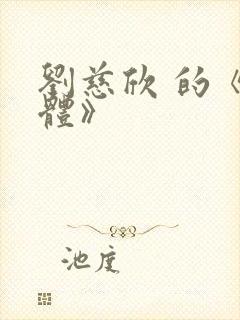 劉慈欣 的《
體》
池度